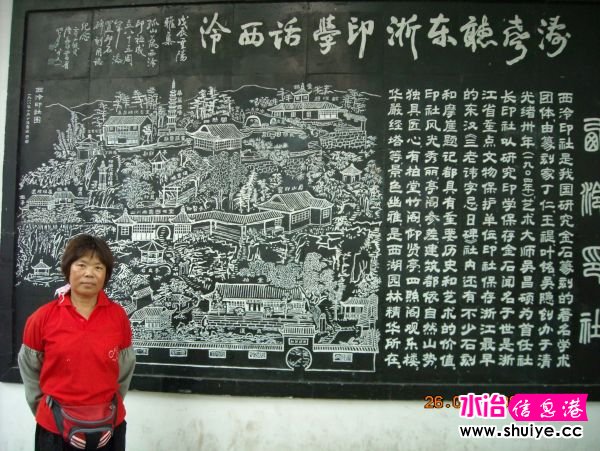 濤声聽东浙印學话西泠
西泠印社
西泠印社是我国研究金石篆刻的著名学术
团体由篆刻家丁仁王褆叶铭吴隐创办于清
光绪卅年(一九〇四年)艺术大师吴昌硕为首任社
长印社以研究印学保存金石闻名于世是浙
江省重点文物保护单位印社保存浙江最早
的东汉三老讳字忌日碑社内还有不少石刻
和摩崖题记都具有重要历史和艺术的价值.
印社风光秀丽亭阁参差建筑都依自然山势.
独具匠心有柏堂竹阁仰贤亭四照阁观乐楼.
华严经塔等景色幽雅是西湖园林精华所在.
戊辰重阳
雅集
孤山之西泠
印社成立
八十五周
年
纪念
西泠印社图
柏堂
26.0
水冶信息港
www.shuiye.cc